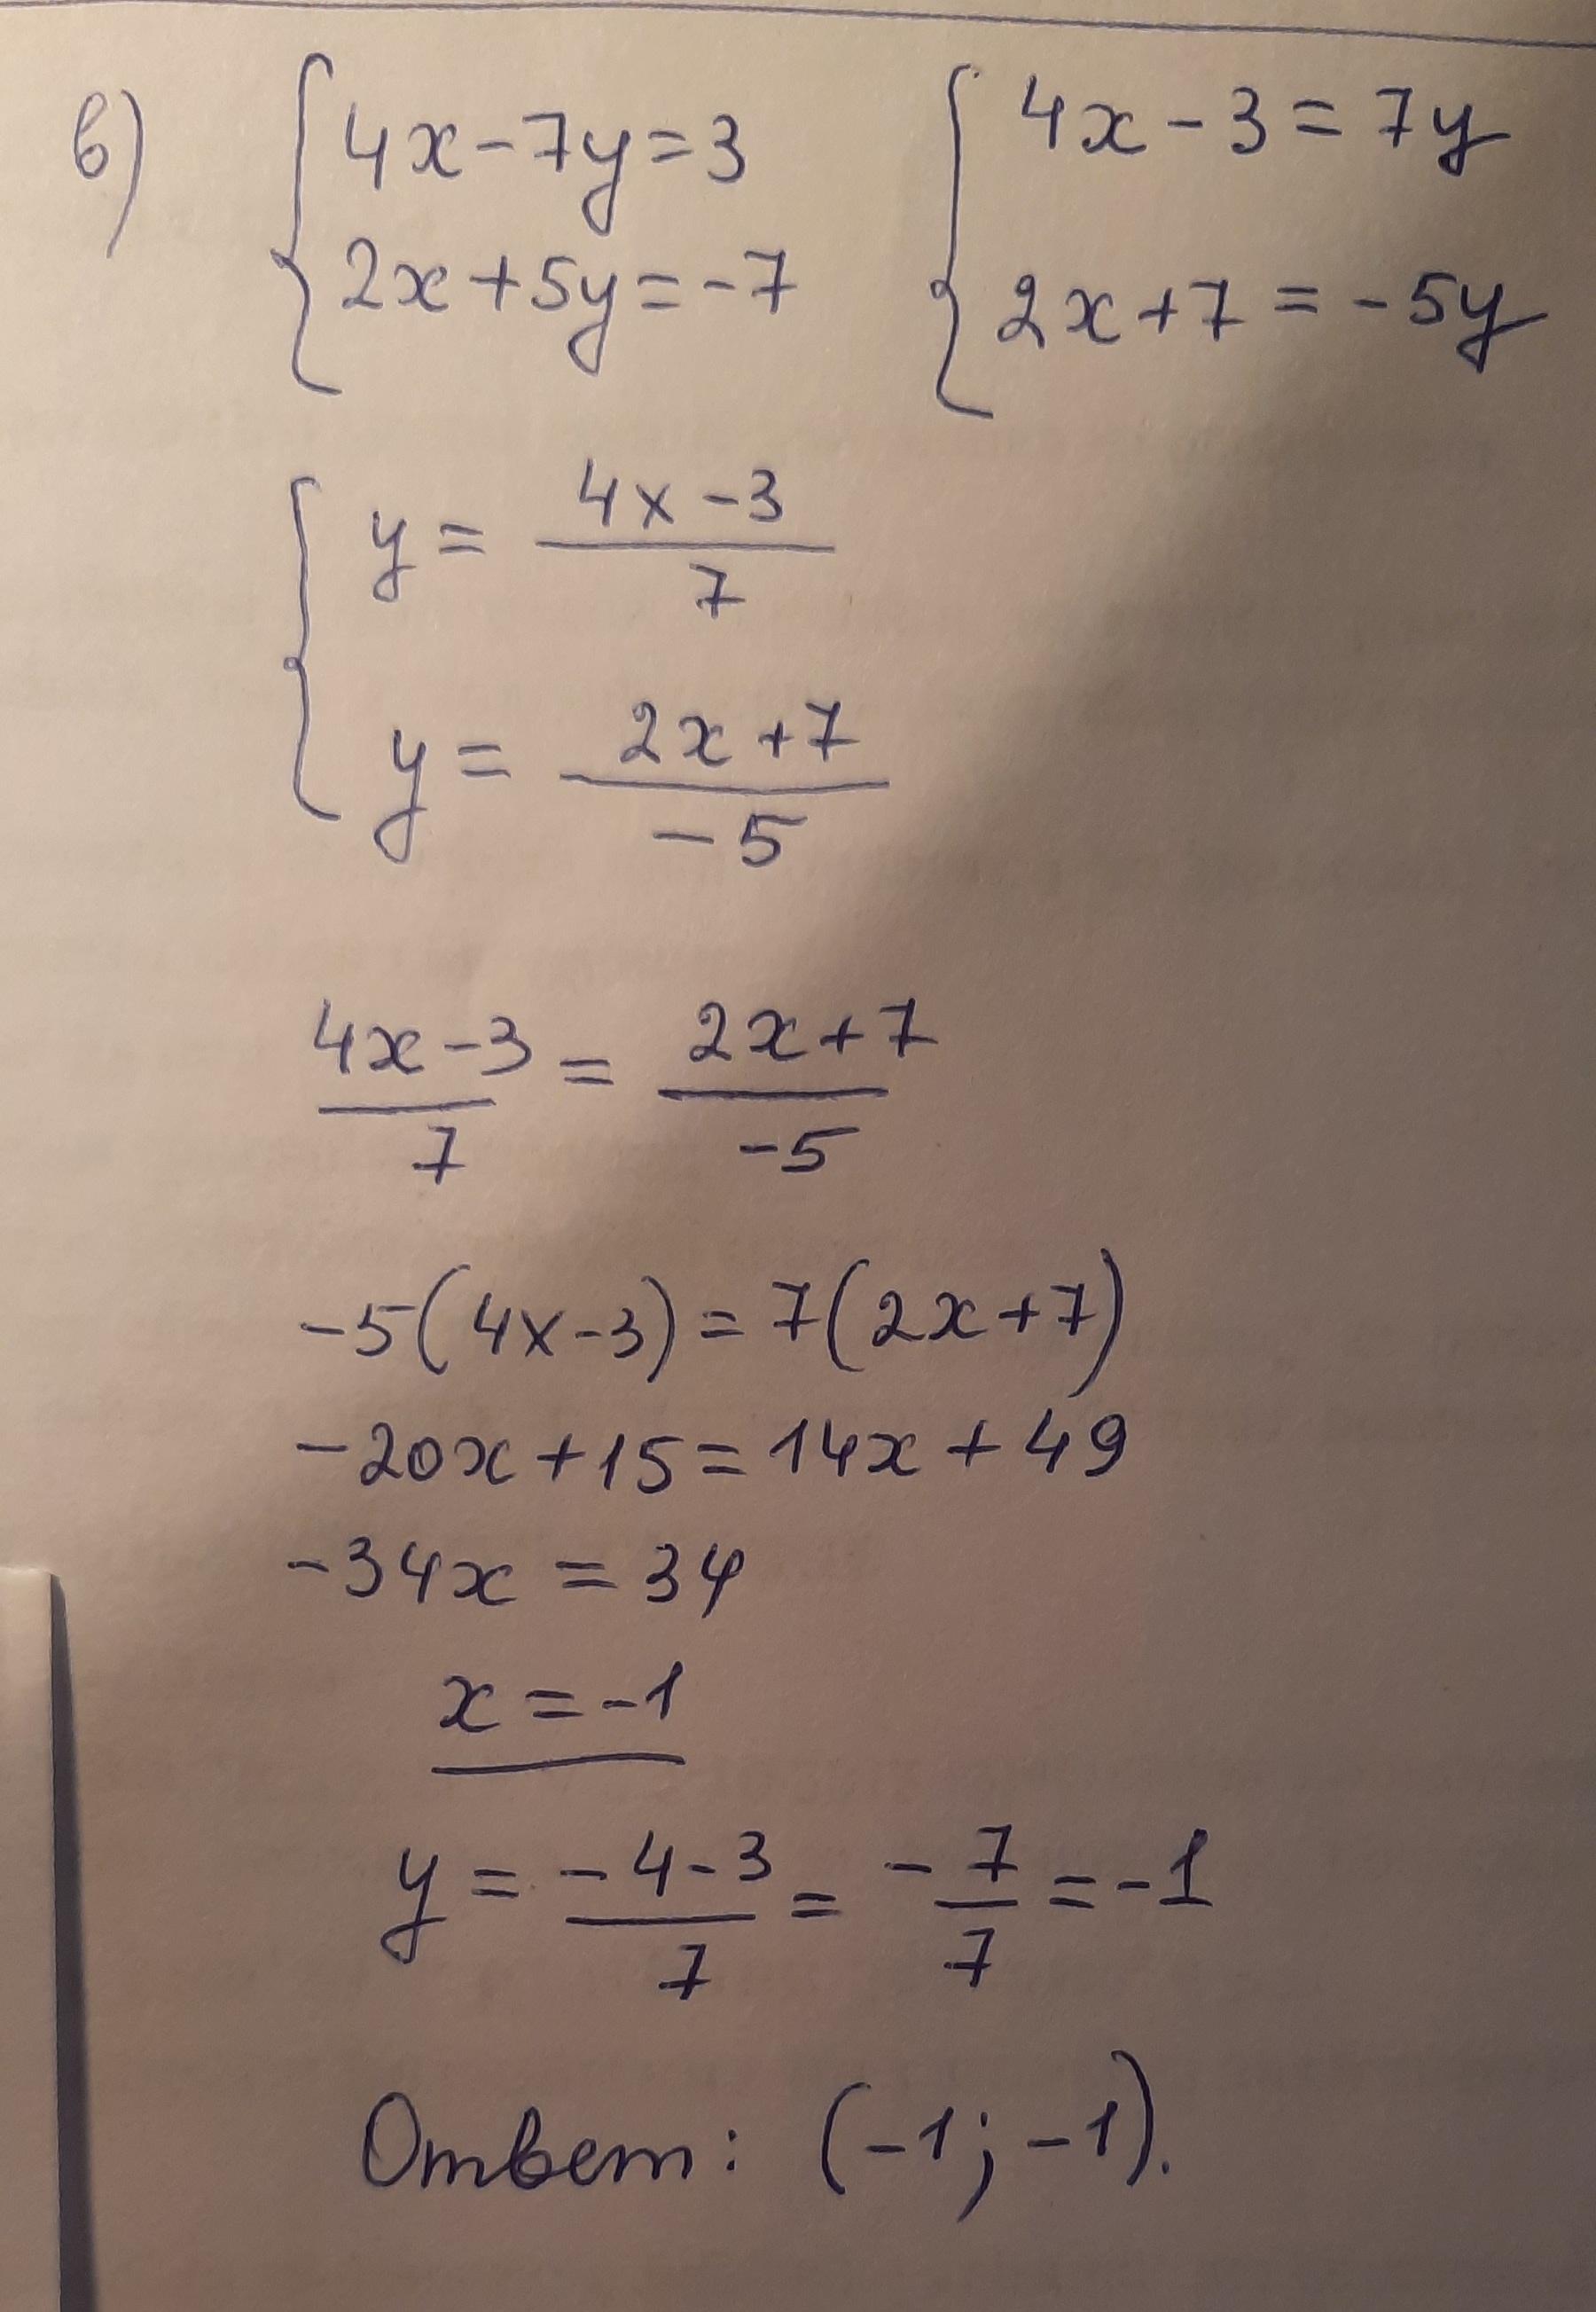 в) { 4x-7y=3 { 4x-3=7y
2x+5y=-7 2x+7=-5y
{ y = 4x-3
7
y = 2x+7
-5
4x-3 = 2x+7
7 -5
-5(4x-3)=7(2x+7)
-20x+15=14x+49
-34x=34
x=-1
y = -4-3 = -7 = -1
7 7
Ответ: (-1; -1).